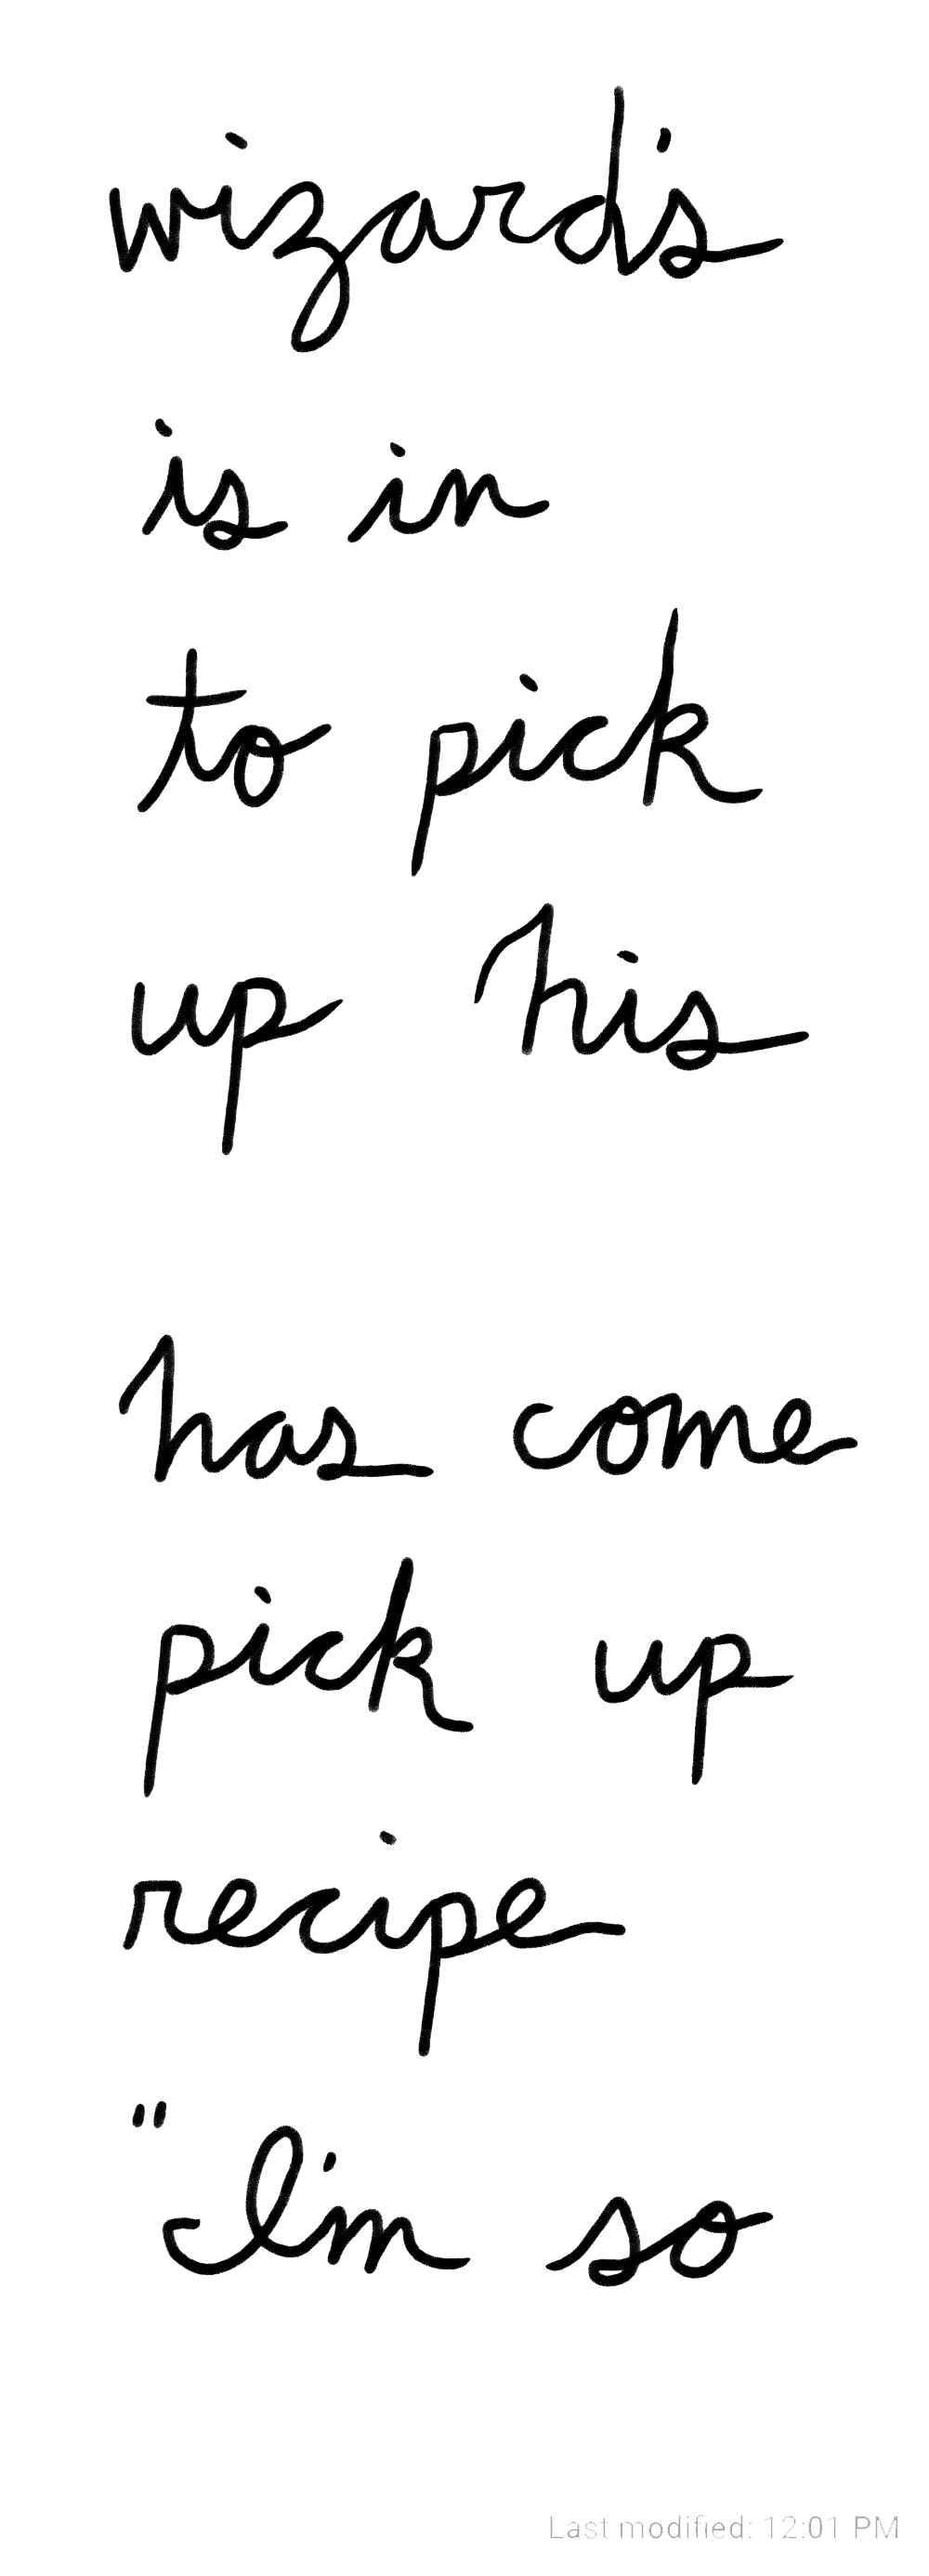 wizard's
is in
to pick
up his
has come
pick up
recipe
"I'm so
Last modified: 12:01 PM